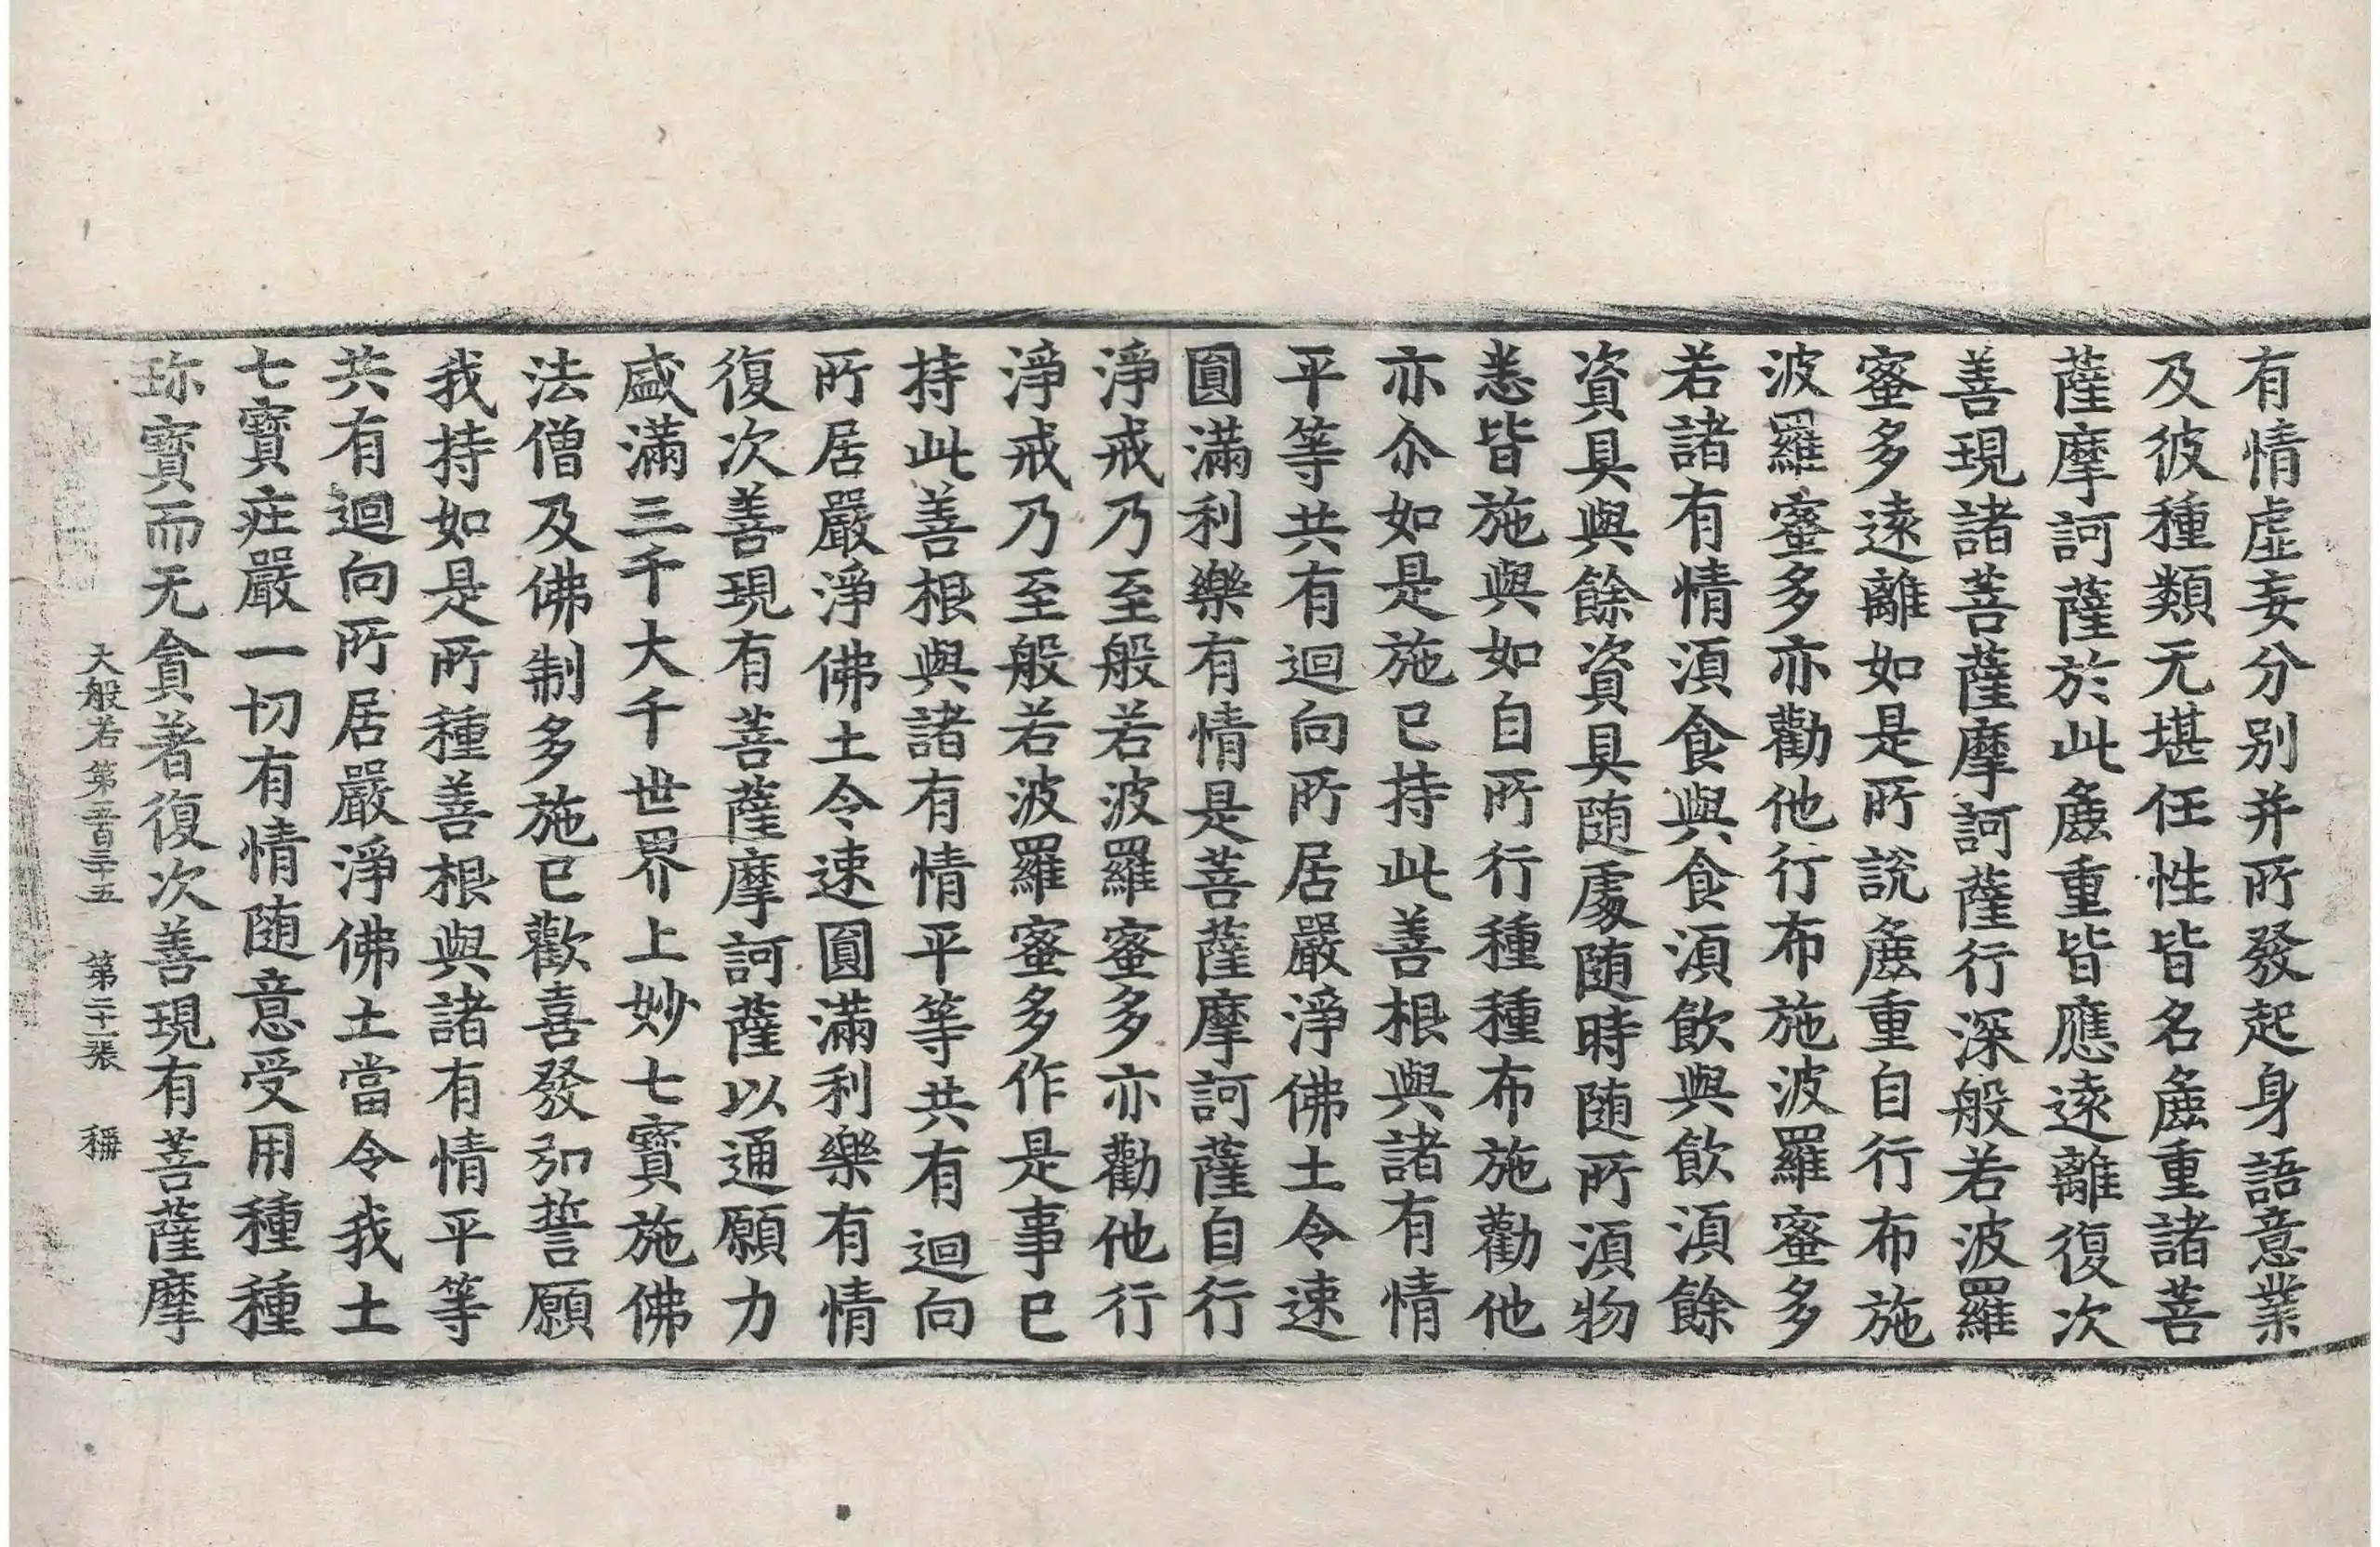 有情虛妄分别并所發起身語意業
及彼種類无堪任性皆名麁重諸菩
薩摩訶薩於此麁重皆應遠離復次
善現諸菩薩摩訶薩行深般若波羅
蜜多遠離如是所說麁重自行布施
波羅蜜多亦勸他行布施波羅蜜多
若諸有情湏食與食湏飲與飲湏餘
資具與餘資具随處随時随所湏物
悉皆施與如自所行種種布施勸他
亦尒如是施已持此善根與諸有情
平等共有迴向所居嚴淨佛土令速
圓滿利樂有情是菩薩摩訶薩自行
淨戒乃至般若波羅蜜多亦勸他行
淨戒乃至般若波羅蜜多作是事已
持此善根與諸有情平等共有迴向
所居嚴淨佛土令速圓滿利樂有情
復次善現有菩薩摩訶薩以通願力
盛滿三千大千世界上妙七寶施佛
法僧及佛制多施已歡喜發弘誓願
我持如是所種善根與諸有情平等
共有迴向所居嚴淨佛土當令我土
七寶庄嚴一切有情随意受用種種
珎寳而无貪著復次善現有菩薩摩
大般若第五百三十五 第二十一張 稱